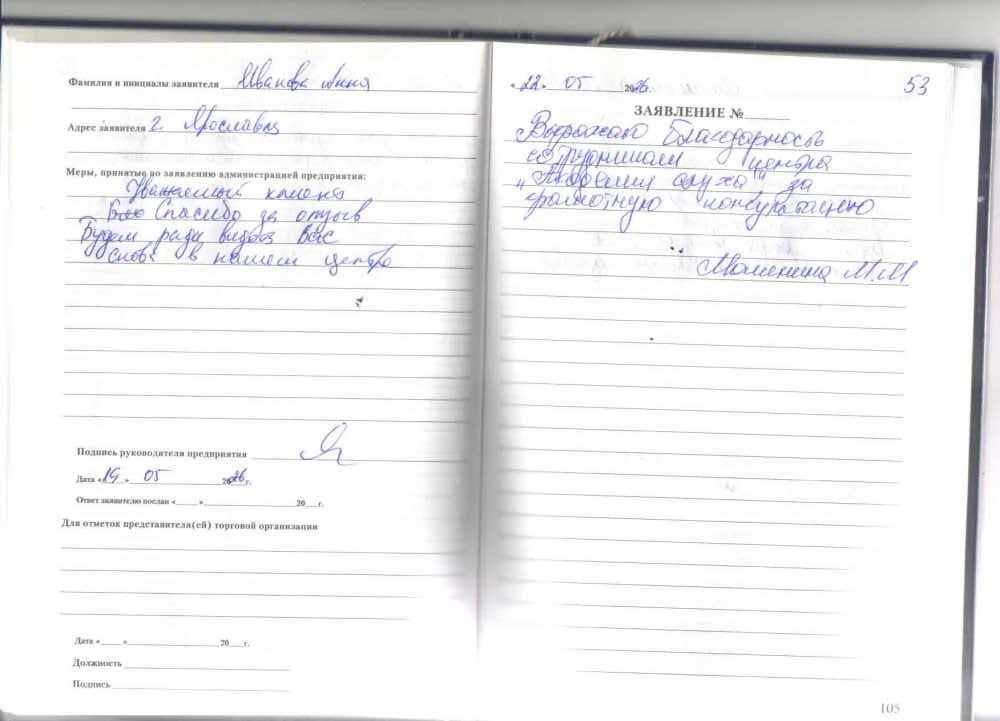 Фамилия и инициалы заявителя Иванова Анна
Адрес заявителя г. Ярославль
Меры, принятые по заявлению администрацией предприятия:
Уважаемый клиент
Спасибо за отзыв
Будем рады видеть Вас
снова в нашем центре
Подпись руководителя предприятия
Дата «19» 05 2026 г.
Ответ заявителю послан «____»____ 20__ г.
Для отметок представителя(ей) торговой организации
Дата «____»____ 20__ г.
Должность
Подпись
«22» 05 2026 53
ЗАЯВЛЕНИЕ №
Выражаю благодарность
сотрудникам центра
"Академия слуха" за
грамотную консультацию
М.М.
105